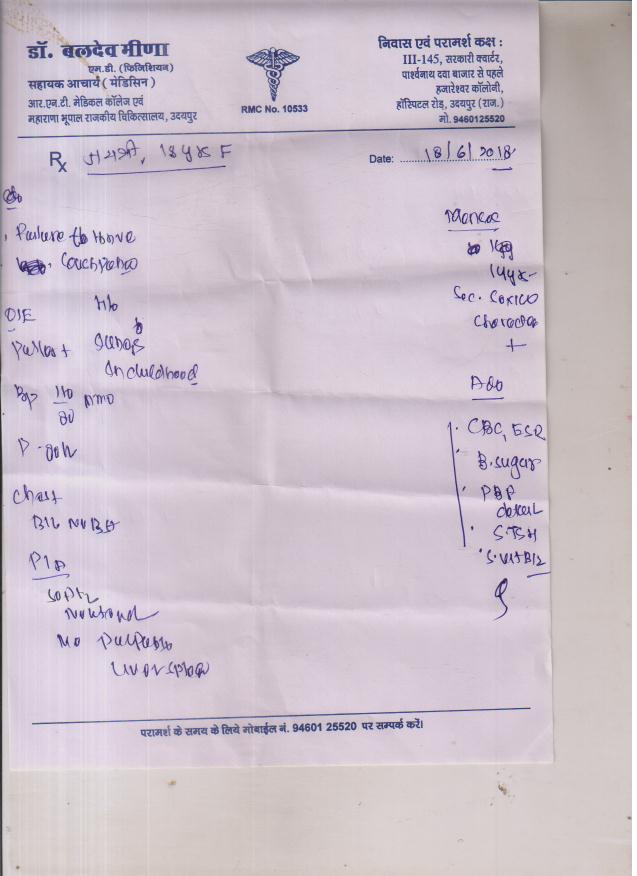 डॉ. बलदेव मीणा
एम.डी. (फिजिशियन)
सहायक आचार्य ( मेडिसिन )
आर.एन.टी. मेडिकल कॉलेज एवं
महाराणा भूपाल राजकीय चिकित्सालय, उदयपुर
RMC No. 10533
निवास एवं परामर्श कक्ष :
III-145, सरकारी क्वार्टर,
पार्श्वनाथ दवा बाजार से पहले
हजारेश्वर कॉलोनी,
हॉस्पिटल रोड़, उदयपुर (राज.)
मो. 9460125520
Rx जयश्री, 18 yrs F
Date: 18/6/2018
Failure to thrive
H/o
O/E
Pallor +
In childhood
BP 110/80 mmHg
P-80/m
Chest
B/L NVBS
P/A
soft
No palpable
Menarche
14 yrs
Sec. sexual
character
+
Adv
CBC, ESR
B.sugar
PBF
S.TSH
S.Vit B12
परामर्श के समय के लिये मोबाईल नं. 94601 25520 पर सम्पर्क करें।